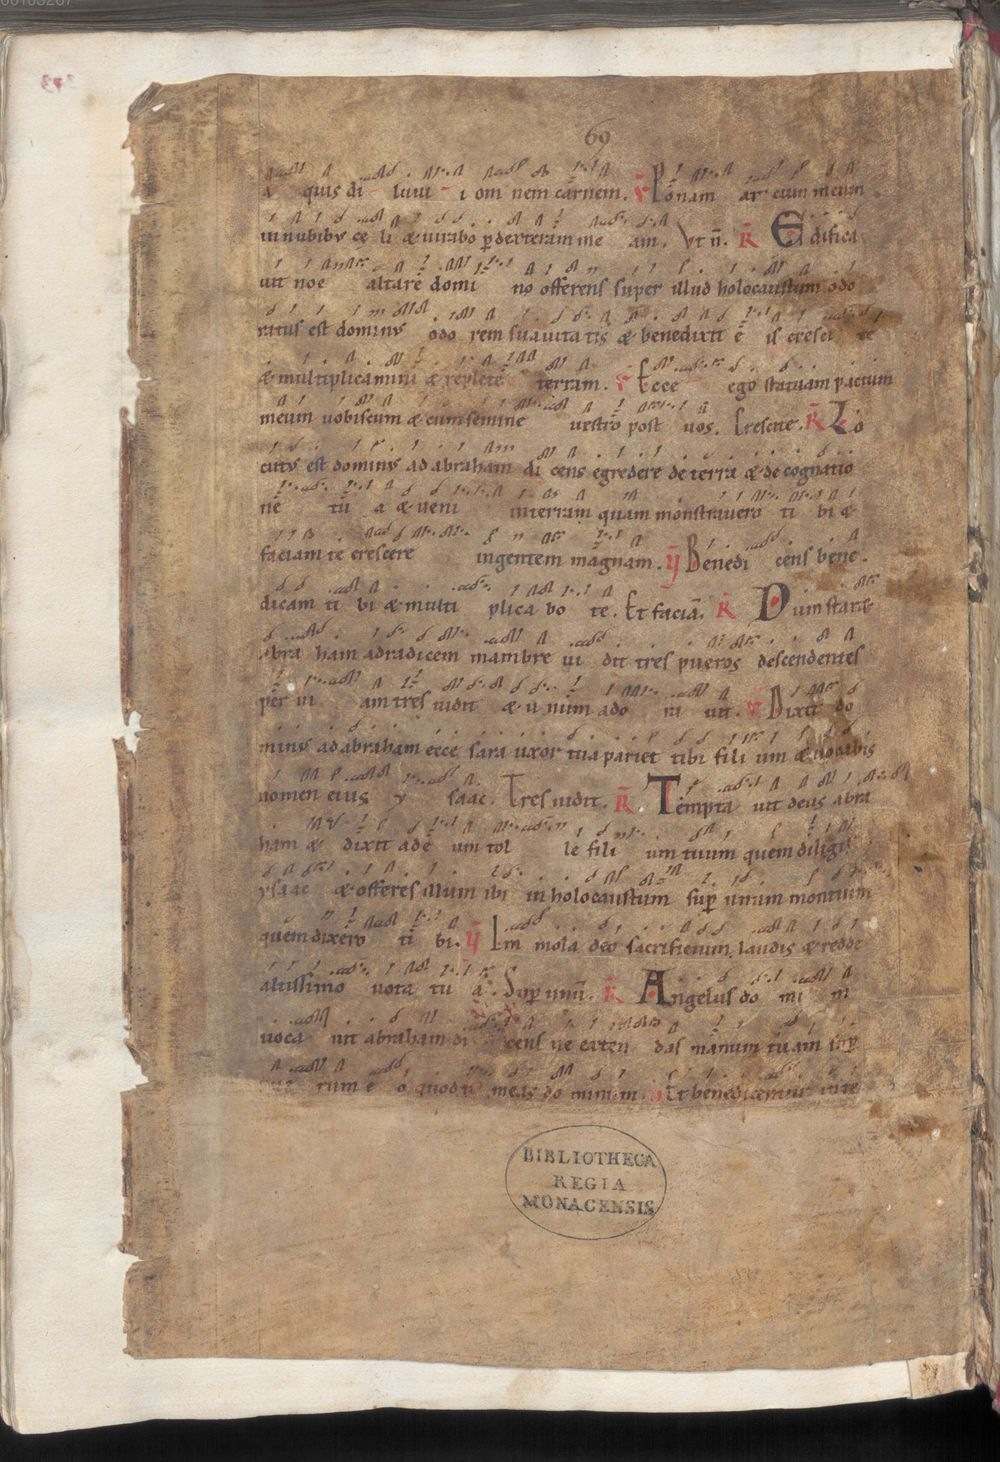 69
a quis di luui i om nem carnem. v Ponam ar cum meum
in nubibus ce li & iurabo p dexteram me am. Vt n. R Edifica
uit noe altare domi no offerens super illud holocaustum odo
ratus est dominus odo rem suauita tis & benedixit e is cresci te
& multiplicamini & replete terram. v Ecce ego statuam pactum
meum uobiscum & cum semine uestro post uos. Crescite. R Lo
cutus est dominus ad abraham di cens egredere de terra & de cognatio
ne tu a & ueni in terram quam monstrauero ti bi &
faciam te crescere in gentem magnam. v Benedi cens bene
dicam ti bi & multi plica bo te. Et facia. R Dum staret
abra ham ad radicem mambre ui dit tres pueros descendentes
per ui am tres uidit & u num ado ra uit. v Dixit do
minus ad abraham ecce sara uxor tua pariet tibi fili um & uocabis
nomen eius y saac. Tres uidit. R. Tempta uit deus abra
ham & dixit ad e um tol le fili um tuum quem diligis
ysaac & offeres illum ibi in holocaustum sup unum montium
quem dixero ti bi. v Im mola deo sacrificium laudis & redde
altissimo uota tu a. Sup unu. R Angelus do mi ni
uoca uit abraham di cens ne exten das manum tuam sup
rum e o quod ti meas do minum. v Et benedicentur in te
BIBLIOTHECA
REGIA
MONACENSIS